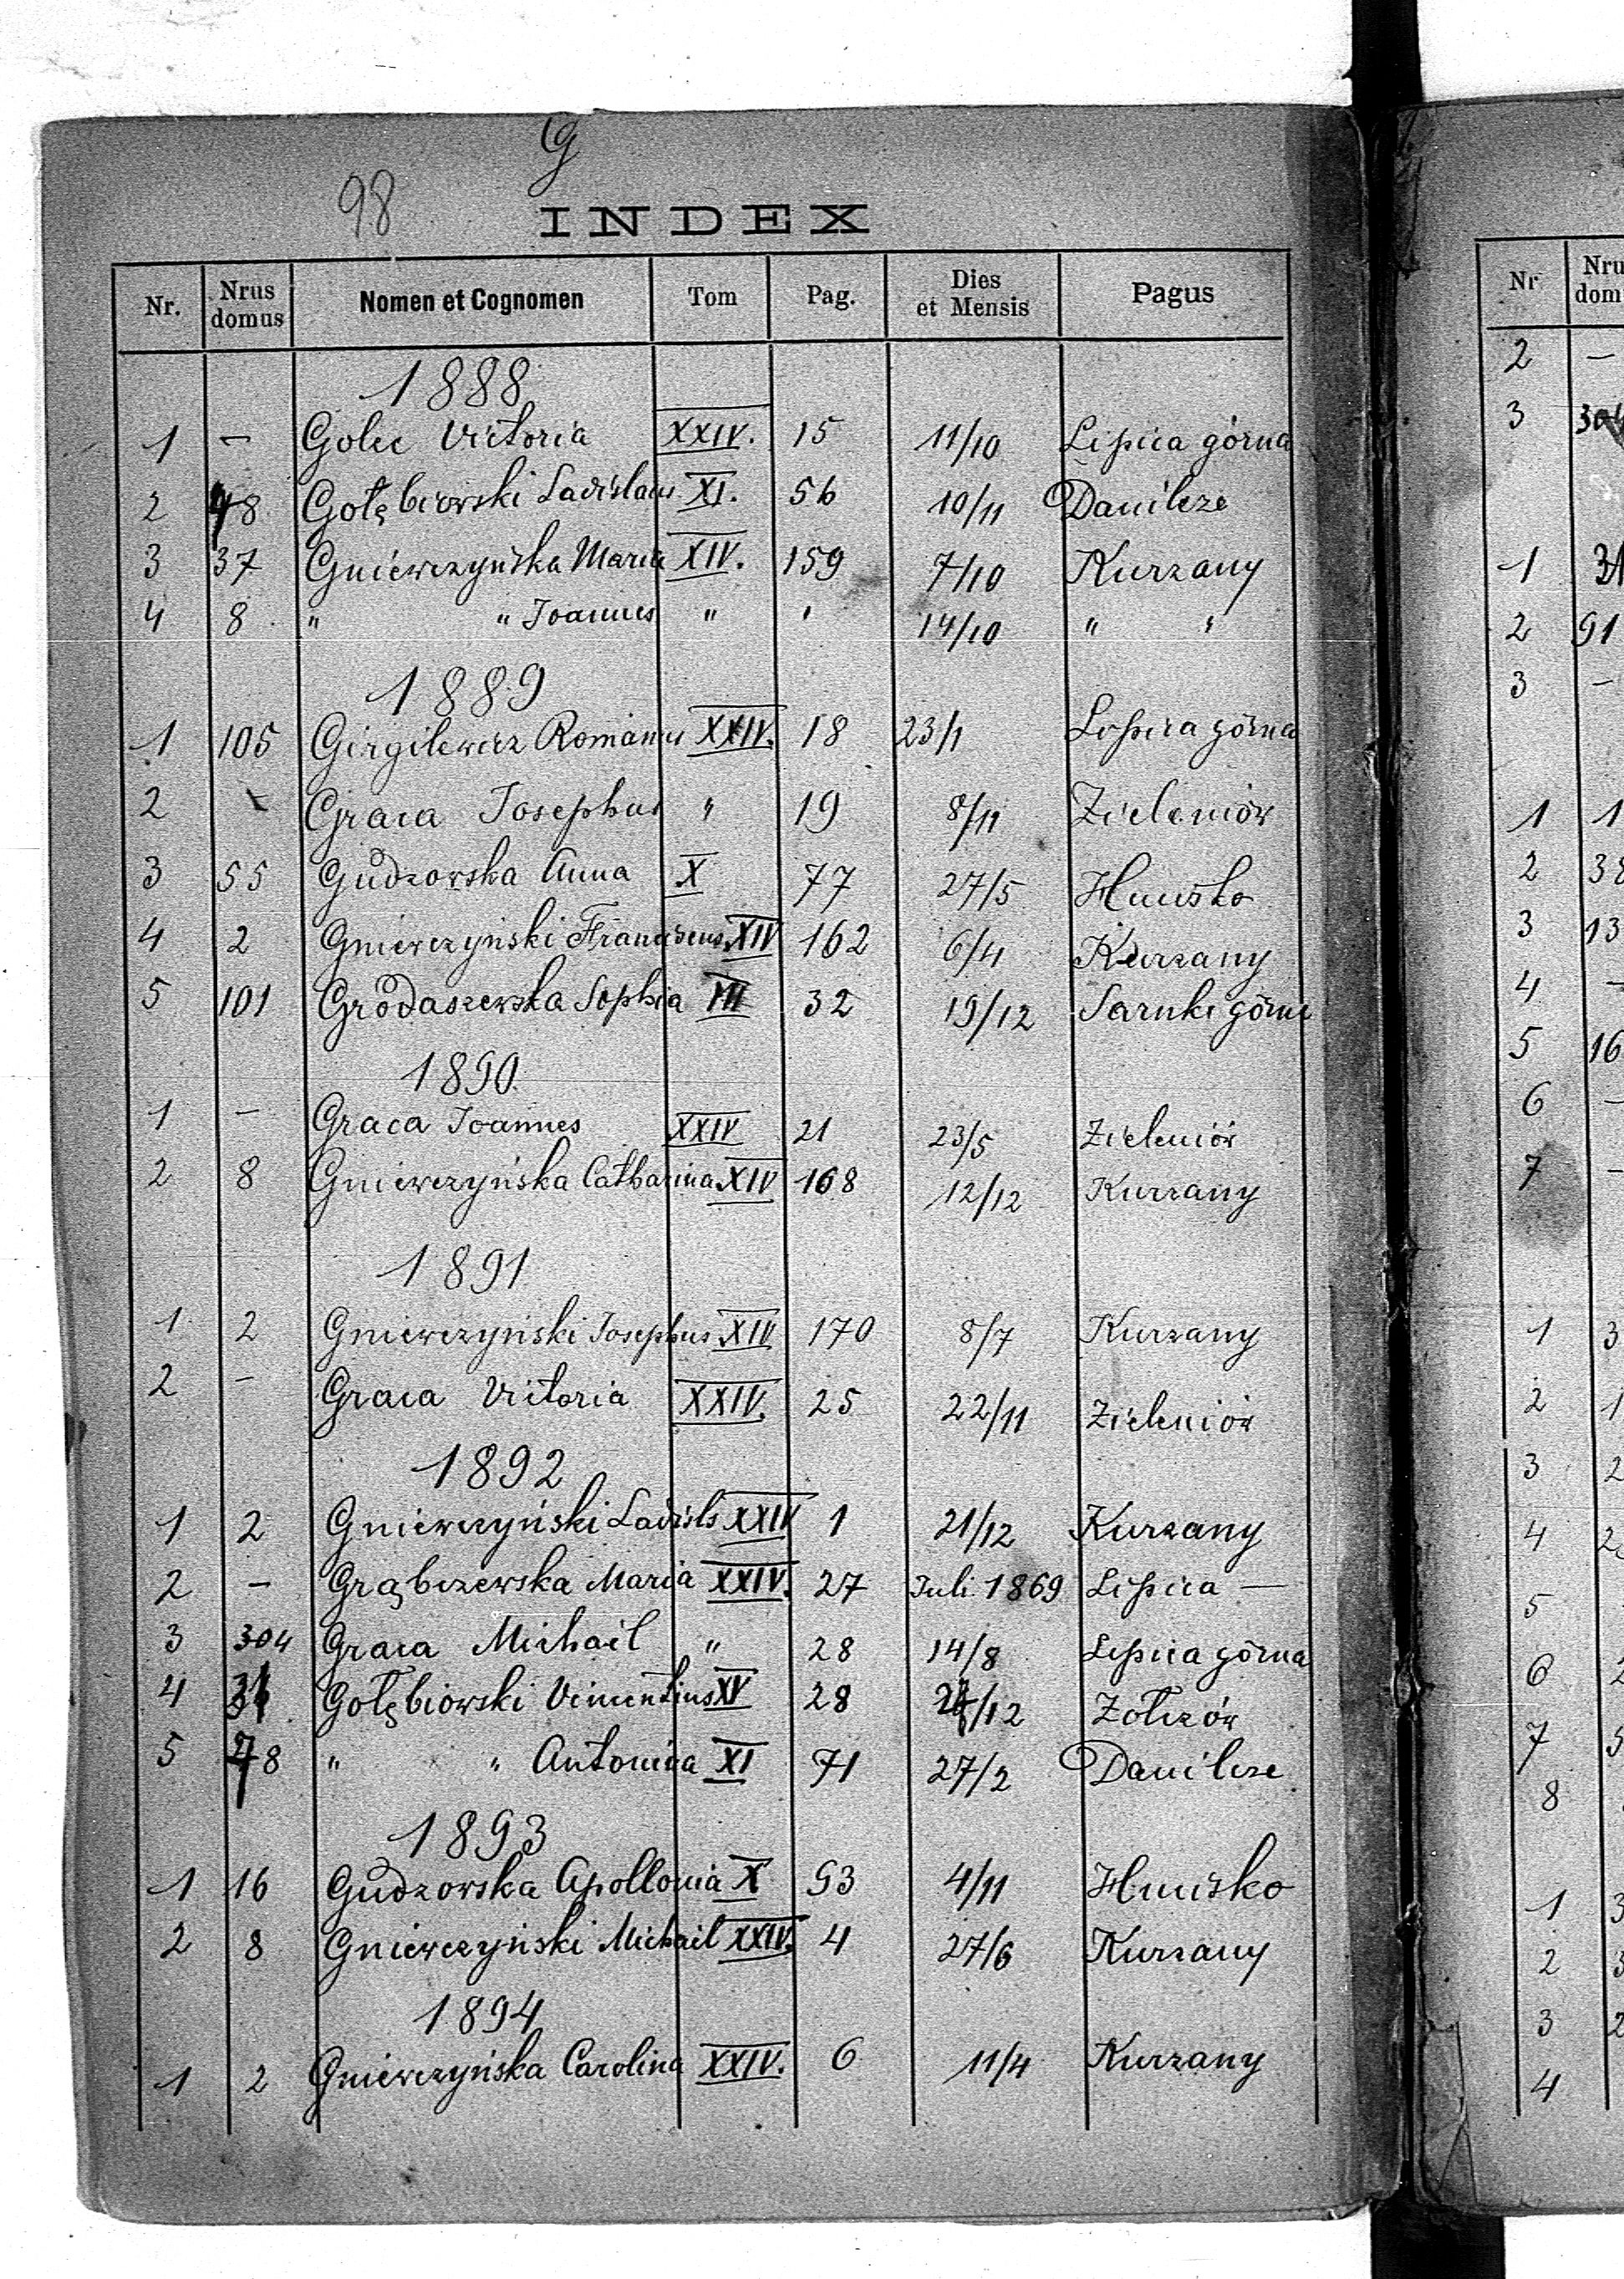 G
98
INDEX
Nr. Nrus domus Nomen et Cognomen Tom Pag. Dies et Mensis Pagus
1888
1 — Golec Victoria XXIV. 15 11/10 Lipica górna
2 48 Gołębiowski Ladislaus XI. 56 10/11 Danilcze
3 37 Gniewczyńska Maria XIV. 159 7/10 Kurzany
4 8 " " Joannes " " 14/10 " "
1889
1 105 Girgilewicz Romanus XXIV. 18 23/1 Lipica górna
2 - Graca Josephus " 19 8/11 Zieleniów
3 55 Gudzowska Anna X 77 27/5 Hnusko
4 2 Gniewczyński Franciscus XIV 162 6/4 Kurzany
5 101 Grodaszewska Sophia III 32 19/12 Sarnki górne
1890
1 — Graca Joannes XXIV 21 23/5 Zieleniów
2 8 Gniewczyńska Catharina XIV 168 12/12 Kurzany
1891
1 2 Gniewczyński Josephus XIV 170 8/7 Kurzany
2 - Graca Victoria XXIV. 25 22/11 Zieleniów
1892
1 2 Gniewczyński Ladisls XXIV 1 21/12 Kurzany
2 — Grąbczewska Maria XXIV. 27 Juli 1869 Lipica —
3 304 Graca Michail " 28 14/8 Lipica górna
4 31 Gołębiowski Vincentius XV 28 /12 Żołczów
5 48 " " Antonina XI 71 27/2 Danilcze
1893
1 16 Gudzowska Apollonia X 93 4/11 Hnusko
2 8 Gniewczyński Michail XXIV. 4 27/6 Kurzany
1894
1 2 Gniewczyńska Carolina XXIV. 6 11/4 Kurzany
Nr
2 —
3 304
1 31
2 91
3 —
1 1
2 38
3 13
4 —
5 16
6 —
7 —
1 3
2 1
3 2
4 2
5
6
7 5
8
1 3
2 3
3 2
4